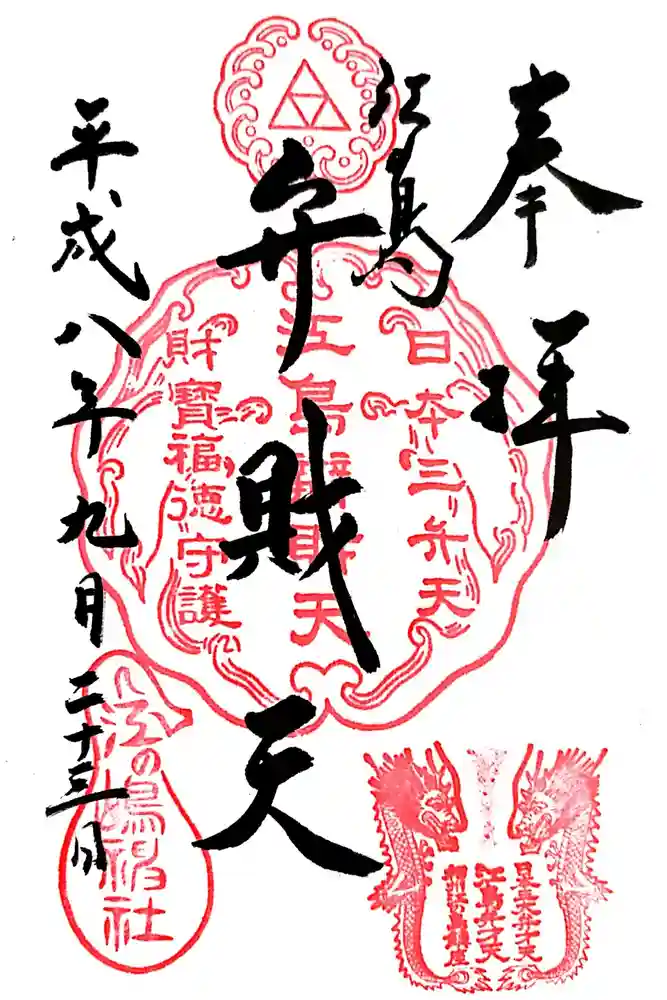 奉拝
江島
弁財天
平成八年九月二十三日
日本三弁天
江島辯財天
財寶福徳守護
江の嶋神社
日本三大弁才天
江ノ島弁才天